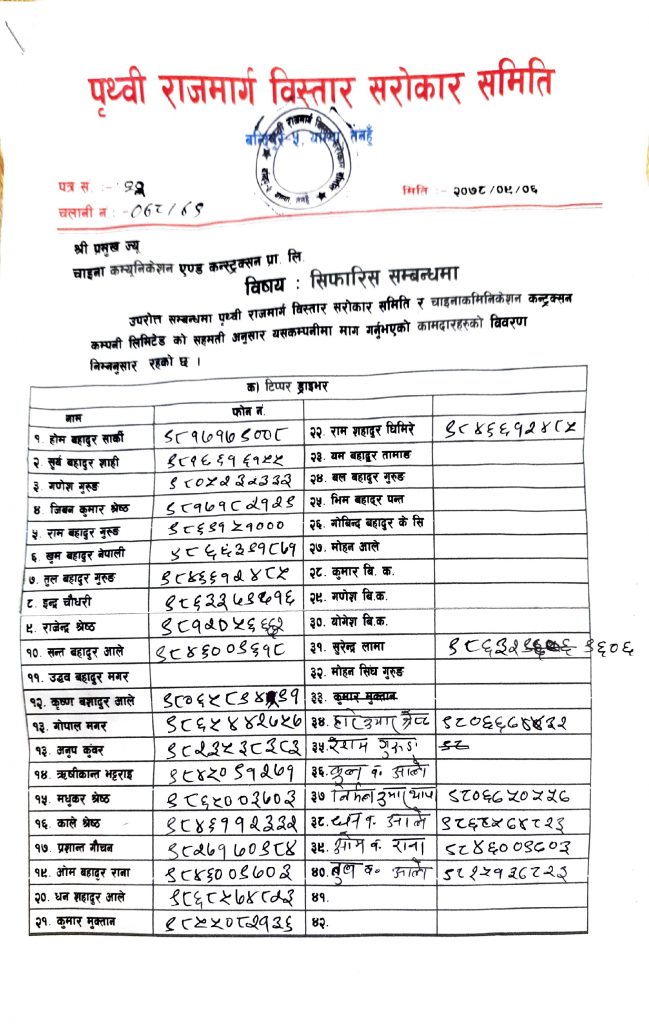 पृथ्वी राजमार्ग विस्तार सरोकार समिति
बन्दिपुर-५, तनहुँ
पत्र स. :- १२
मिति :- २०७८/०९/०६
चलानी न :- ०६८/६९
श्री प्रमुख ज्यू
चाइना कम्यूनिकेशन एण्ड कन्स्ट्रक्सन प्रा. लि.
विषय : सिफारिस सम्बन्धमा
उपरोत्त सम्बन्धमा पृथ्वी राजमार्ग विस्तार सरोकार समिति र चाइनाकमिनिकेशन कन्ट्रक्सन
कम्पनी लिमिटेड को सहमती अनुसार यसकम्पनीमा माग गर्नुभएको कामदारहरुको विवरण
निम्ननुसार रहको छ ।
क) टिप्पर ड्राइभर
नाम फोन नं.
१. होम बहादुर सार्की ९८१७१७९००८ २२. राम बहादुर घिमिरे ९८४६६१२४८५
२. सुर्य बहादुर शाही ९८१६६१६१५५ २३. यम बहादुर तामाङ
३. गणेश गुरुङ ९८०५२३२३३३ २४. बल बहादुर गुरुङ
४. जिबन कुमार श्रेष्ठ ९८१७१८२१२९ २५. भिम बहादुर पन्त
५. राम बहादुर गुरुङ ९८६९१५१००० २६. गोबिन्द बहादुर के सि
६. खुम बहादुर नेपाली ९८६६३९१८७१ २७. मोहन आले
७. तुल बहादुर गुरुङ ९८४६६१२४८५ २८. कुमार बि. क.
८. इन्द्र चौधरी ९८६३३७९७१६ २९. गणेश बि.क.
९. राजेन्द्र श्रेष्ठ ९८१२०५६६६२ ३०. योगेश बि.क.
१०. सन्त बहादुर आले ९८४६००९६१८ ३१. सुरेन्द्र लामा ९८६३२ ९६०६
११. उद्धव बहादुर मगर ३२. मोहन सिंघ गुरुङ
१२. कृष्ण बहादुर आले ९८०६५८९४ ९१ ३३. कुमार मुक्तान
१३. गोपाल मगर ९८६५४४२७५७ ३४. श्रेष्ठ ९८०६६७ ३२
१३. अनुप कुंवर ९८२३५३८३८३ ३५. रेशम गुरुङ ९८
१४. ऋषीकान्त भट्टराई ९८४५०९१२७१ ३६. आले
१५. मधुकर श्रेष्ठ ९८६५००३७०३ ३७ थापा ९८०६६५०५५६
१६. काले श्रेष्ठ ९८४६११२३३२ ३८. धन ब. आले ९८६८५७४८२३
१७. प्रशान्त गौचन ९८२७१७०९८४ ३९. ओम ब. राना ९८४६००९७०३
१९. ओम बहादुर राना ९८४६००९७०३ ४०. तुल ब. आले ९८२५१३६८२३
२०. धन बहादुर आले ९८६८५७४८२३ ४१.
२१. कुमार मुक्तान ९८५५०८२१३६ ४२.